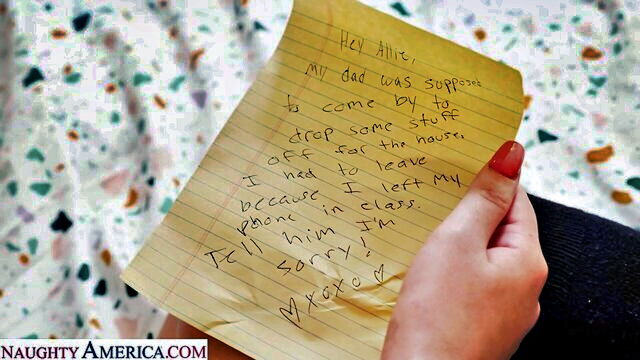 Hey Allie,
My dad was supposed
to come by to
drop some stuff
off for the house.
I had to leave
because I left my
phone in class.
Tell him I'm
sorry!
♡xoxo♡
NAUGHTY AMERICA.COM